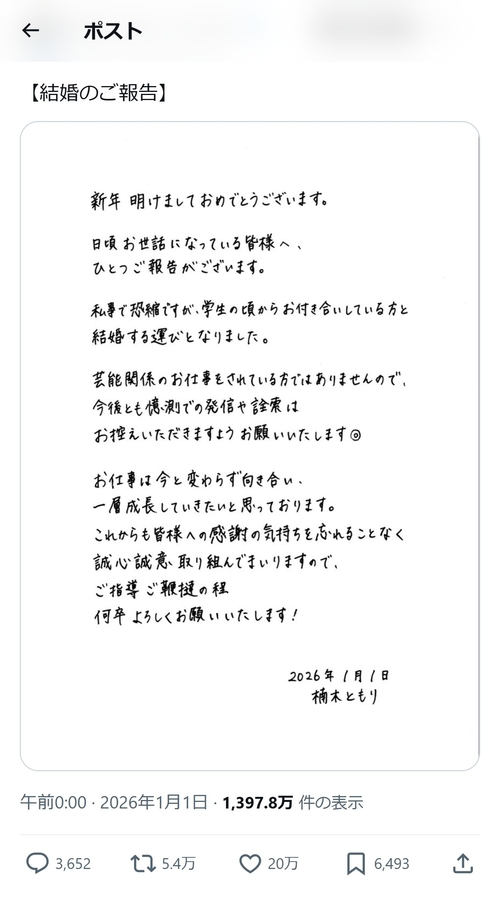 ポスト
【結婚のご報告】
新年 明けましておめでとうございます。
日頃 お世話になっている皆様へ、
ひとつご報告がございます。
私事で恐縮ですが、学生の頃からお付き合いしている方と
結婚する運びとなりました。
芸能関係のお仕事をされている方ではありませんので、
今後とも憶測での発信や詮索は
お控えいただきますようお願いいたします◎
お仕事は今と変わらず向き合い、
一層成長していきたいと思っております。
これからも皆様への感謝の気持ちを忘れることなく
誠心誠意 取り組んでまいりますので、
ご指導 ご鞭撻の程
何卒 よろしくお願いいたします!
2026年 1月1日
楠木ともり
午前0:00 · 2026年1月1日 · 1,397.8万 件の表示
3,652 5.4万 20万 6,493